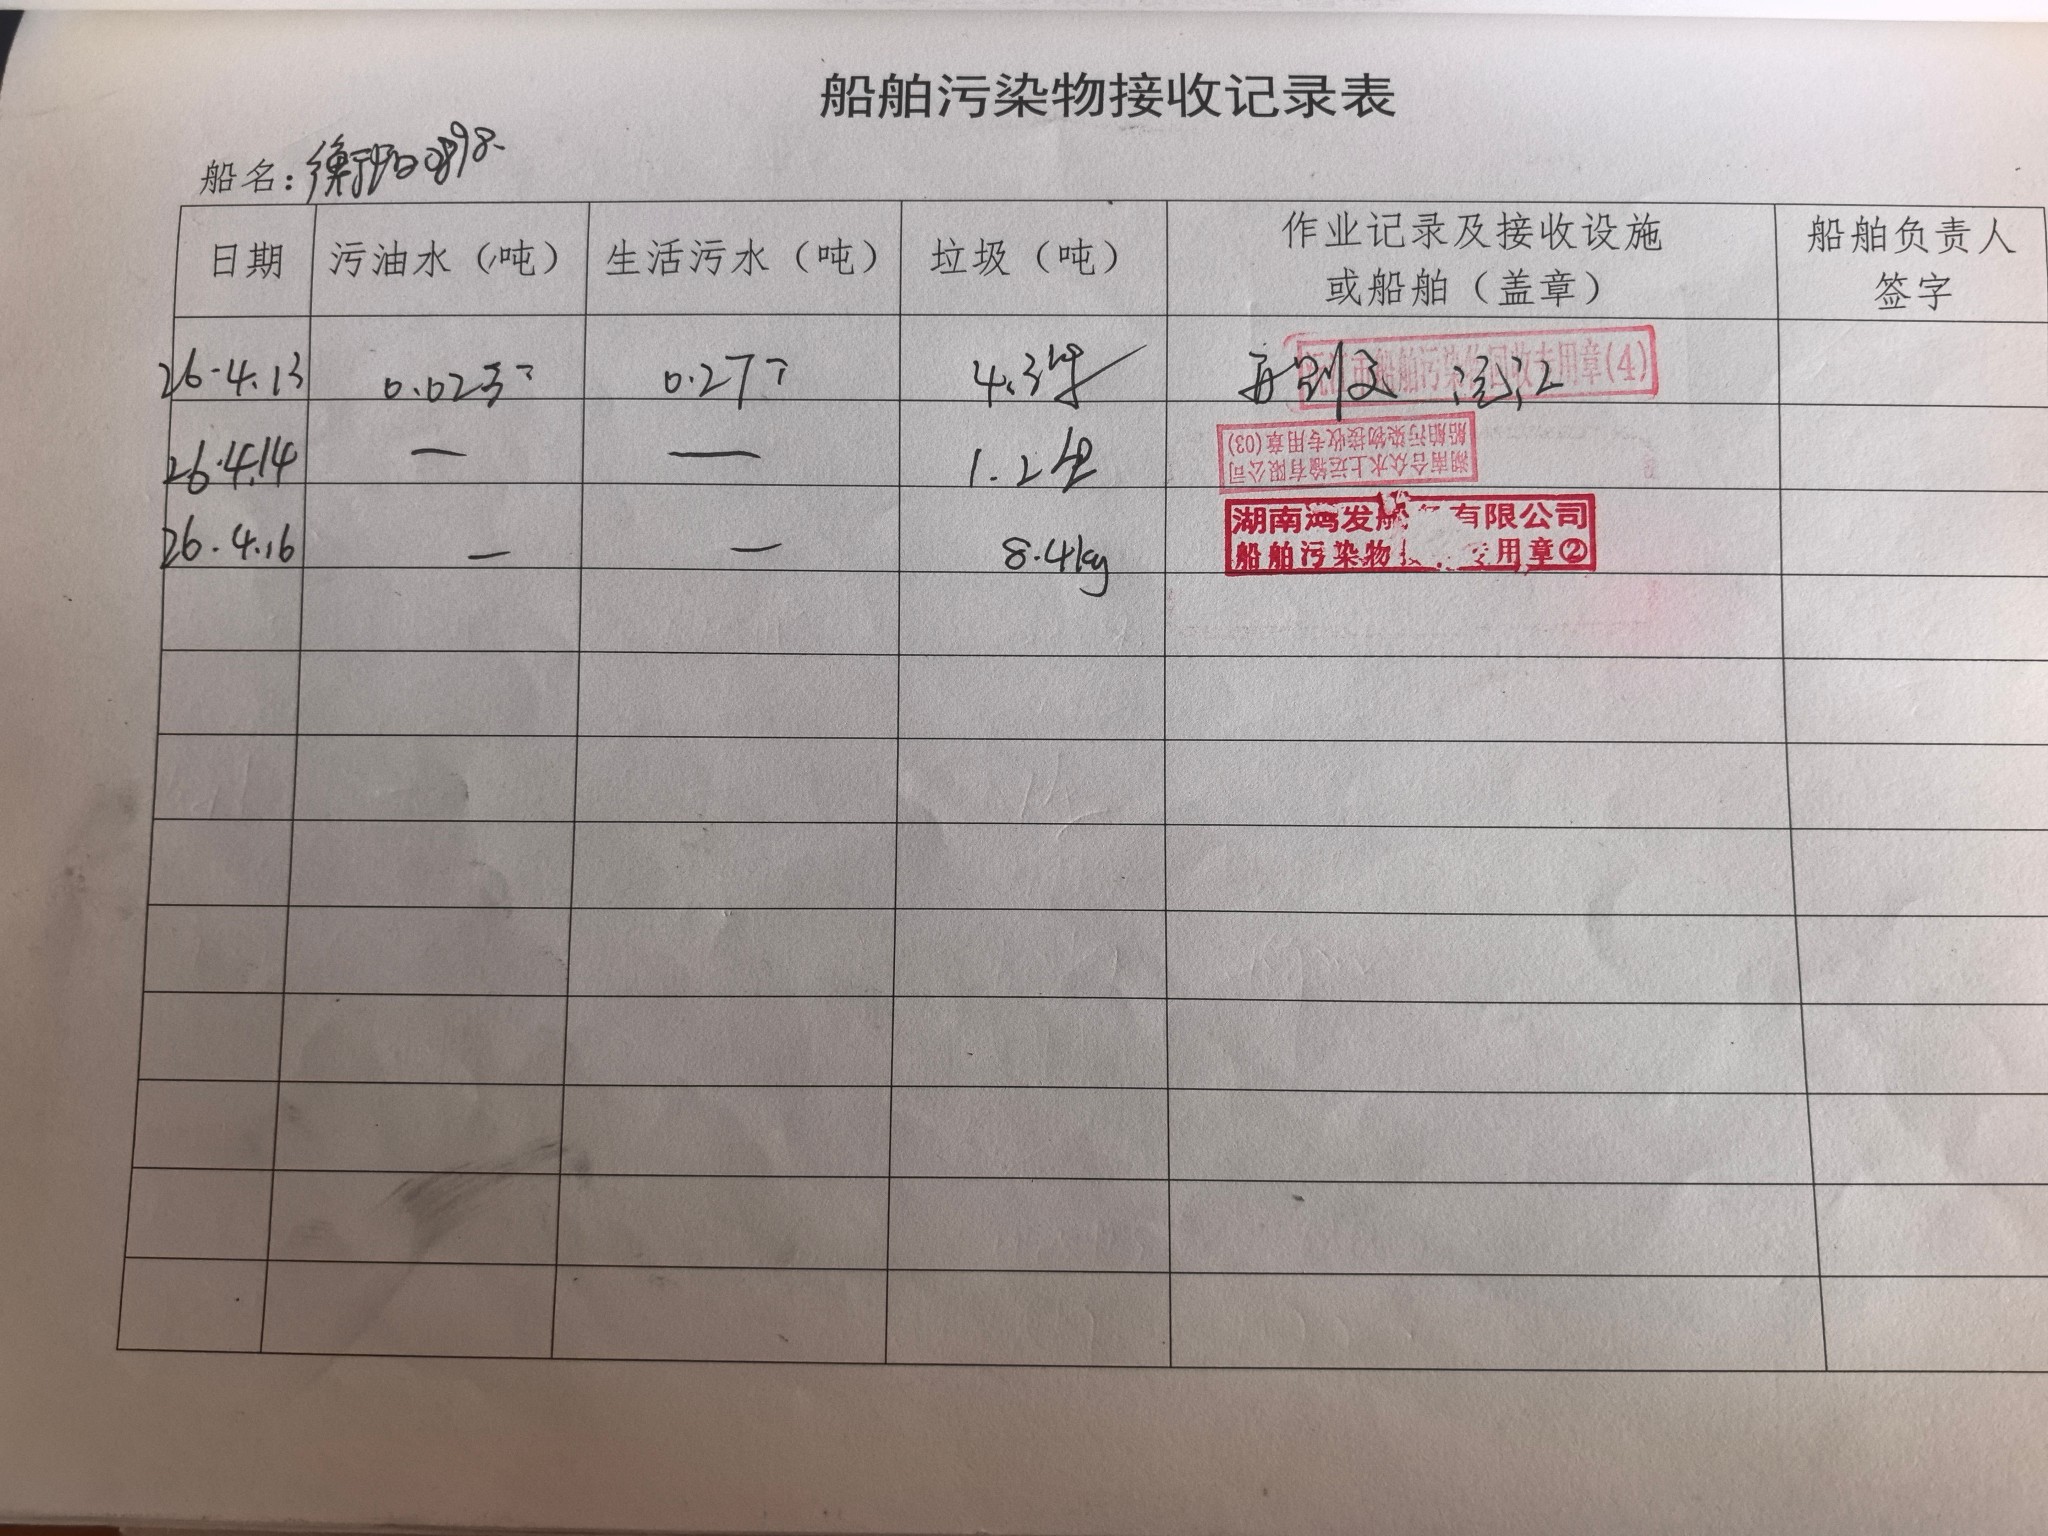 船舶污染物接收记录表
船名：衡阳0898
日期 污油水（吨） 生活污水（吨） 垃圾（吨） 作业记录及接收设施或船舶（盖章） 船舶负责人签字
26.4.13 0.023 0.27 4.3 船舶污染物回收专用章(4)
26.4.14 — — 1.2 湖南合众水上运输有限公司 船舶污染物接收专用章(03)
26.4.16 — — 8.4kg 湖南鸿发 有限公司 船舶污染物 用章②